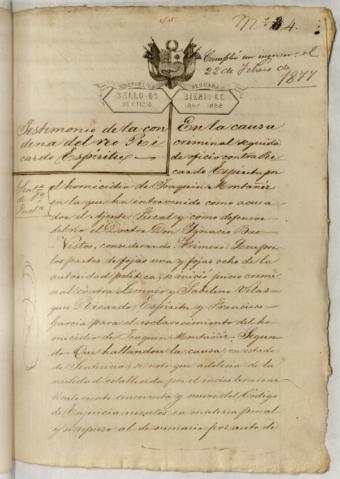 Nº 34.
Cumplió su
22 de Febro de
1877
SELLO 6º
BIENIO DE
DE OFICIO
Testimonio de la con
dena del reo Ri
cardo Espíritu
En la causa
criminal seguida
de oficio contra Ri
cardo Espíritu por
el homicidio de Joaquin Montañez
en la que ha intervenido como acusa
dor el Ajente Fiscal y como defensor
del reo el Doctor Don Ignacio
Vistos, considerando Primero: Que por
los partes de fojas una y fojas ocho de la
autoridad política, se inició juicio crimi
nal contra y
Ricardo Espíritu y Francisco
Garcia para el esclarecimiento del ho
micidio de Joaquin Montañez. Segun
do Que hallandose la causa en estado
de Sentencia se notó que adolecia de la
nulidad establecida por el inciso
ticulo ciento cincuenta y nueve del Codigo
de Enjuiciamientos en materia penal
y se repuso al sumario por auto de